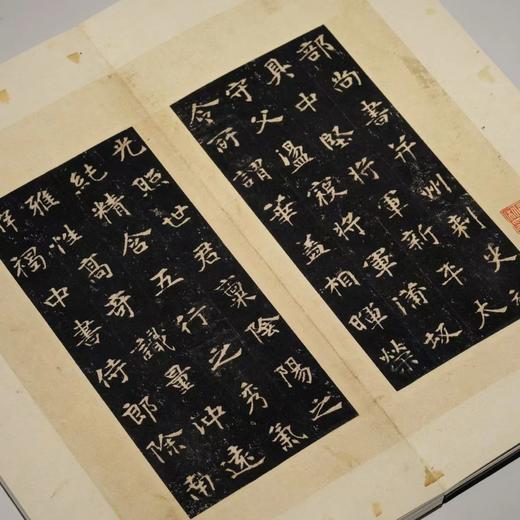 部尚書并州刺史
具中堅將軍新平太
守父温將軍蒲坂
令所謂華蓋相暉榮
光照世君稟陰陽之
純精含五行之秀氣
雅性高奇識量沖遠
釋褐中書侍郎除南